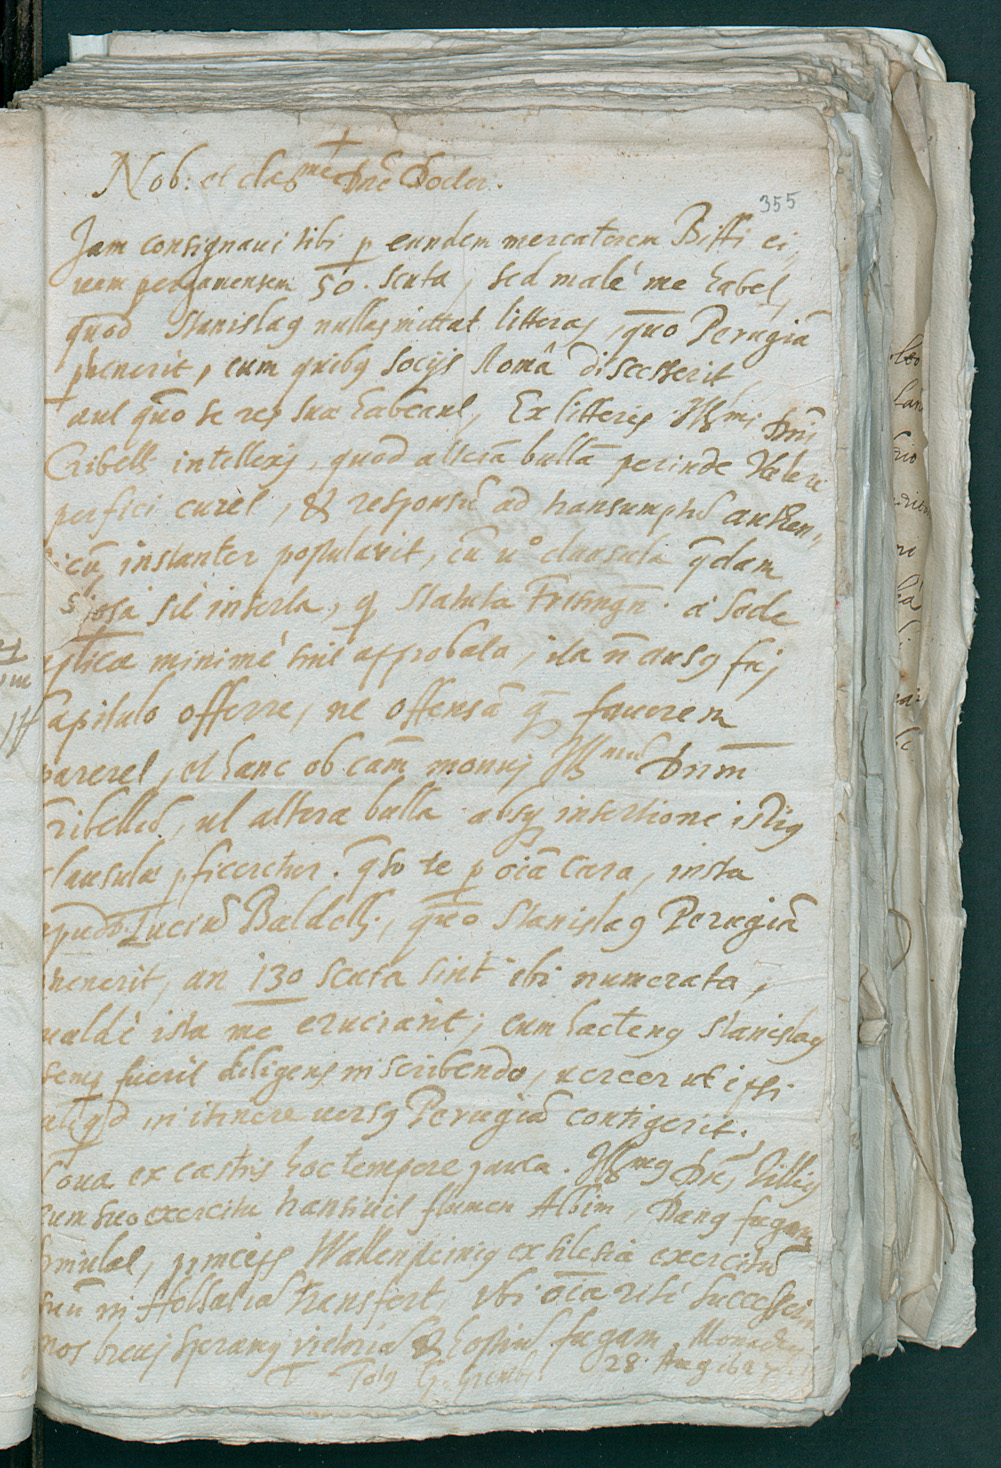 ✝
Nob: et claris^me Dne Doctor.
355
Jam consignavi tibi p eundem mercatorem Biffi ci,
vem pergamensem 50. scuta, sed malè me habet,
quod Stanislaq nullas mittat litteras, quo Perugiã
pvenerit, cum quibq socijs Româ discesserit
aut quo se res suæ habeant, Ex litteris Ill^mi Dni
Cribelli intellexi, quod alterã bullã perinde valere
perfici curet, & responsũ ad transumptũ authen,
ticũ instanter postulavit, cũ v° clausula qdam
sit inserta, q Statuta Frisingñ. à Sede
aplica minimè sint approbata, ita ñ ausq fui
Capitulo offerre, ne offensã q favorem
pareret, et hanc ob cãm monui Ill^mum Dnm
Cribellũ, ut altera bulla absq insertione istiq
clausulæ pficeretur. qso te p oĩa cara, insta
apud D. Luciũ Baldell., quo Stanislaq Perugiã
venerit, an 130 scuta sint ibi numerata,
valdè ista me cruciant; cum hactenq Stanislaq
semp fuerit diligens in scribendo, vereor ut ipsi
aliqd in itinere versq Perugiã contigerit.
Nova ex castris hoc tempore pauca. Ill^mq Dns Tilliq
cum suo exercitu transivit flumen Albim, Danq fugam
simulat, princeps Wallensteiniq ex Silesia exercitũ
suũ in Holsatiã transfert, ubi oĩa ritè
nos brevi speramq victoriã & hostiũ fugam. Monachij
28. Aug 1627.
T Totq G.